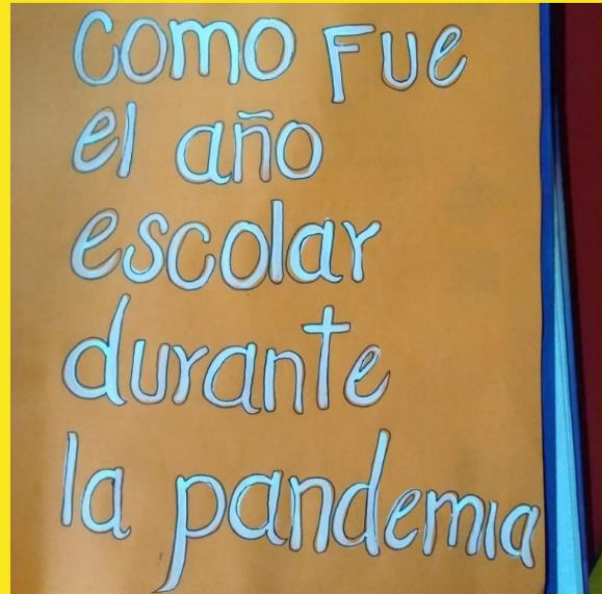 Como Fue
el año
escolar
durante
la pandemia